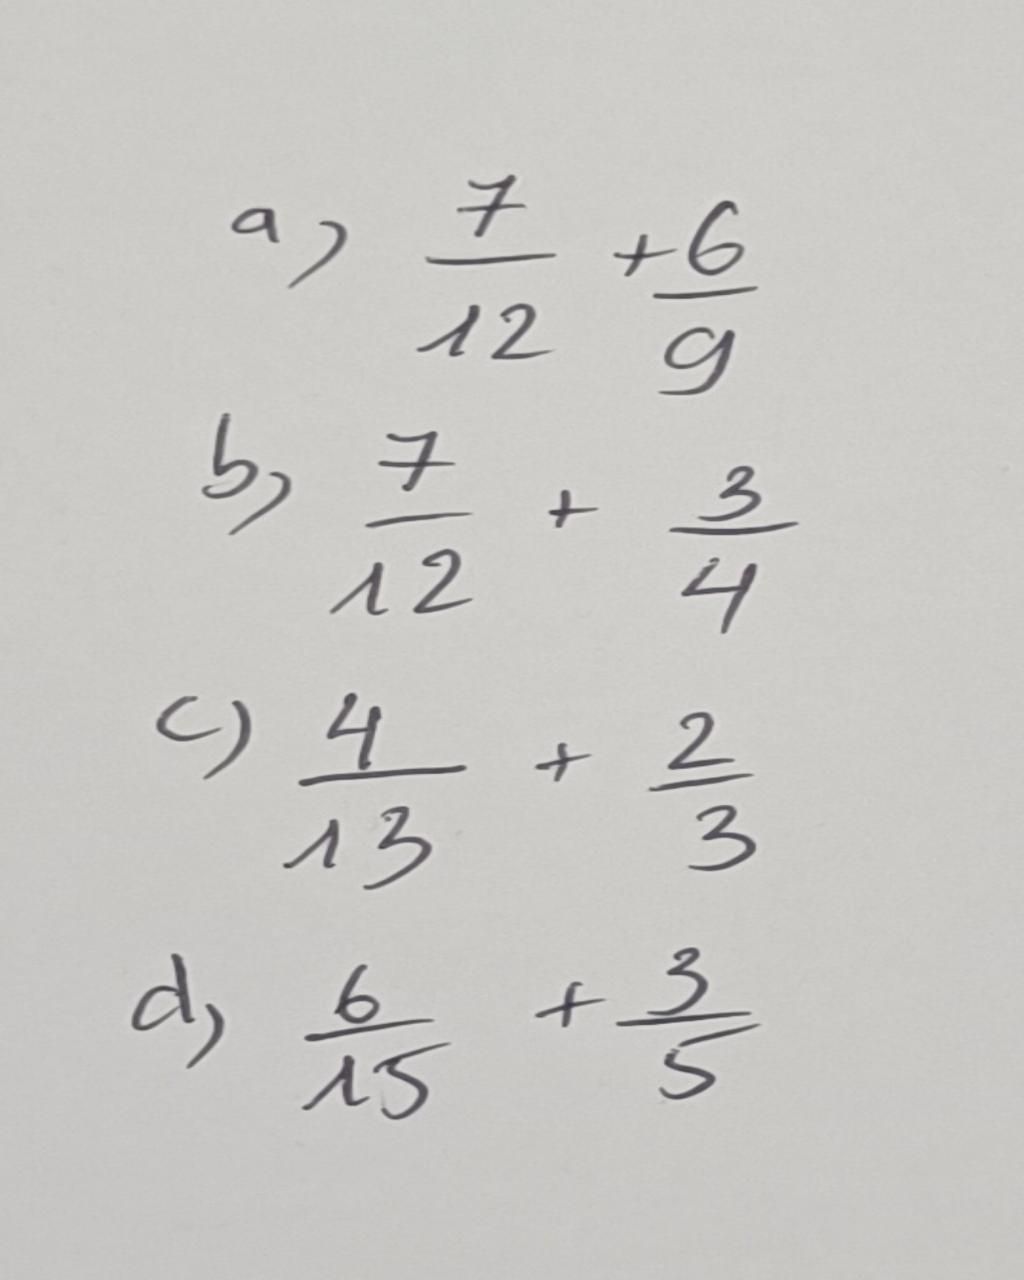 a) 7/12 + 6/9
b) 7/12 + 3/4
c) 4/13 + 2/3
d) 6/15 + 3/5